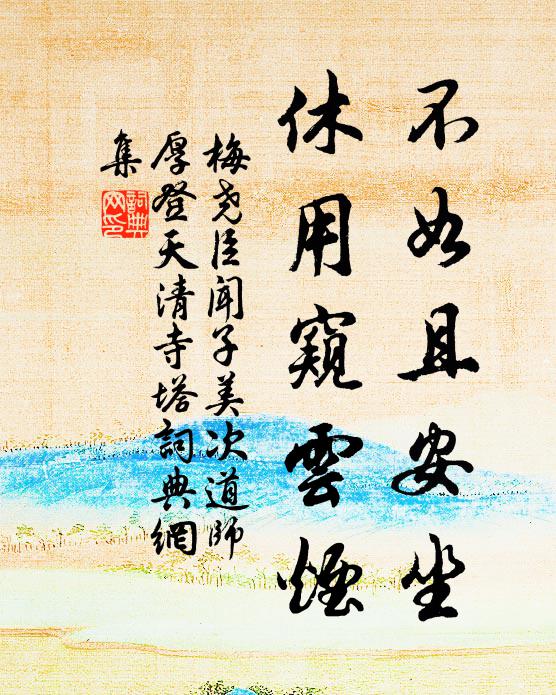 不如且安坐
休用窺雲煙
梅堯臣聞子美次道師
厚登天清寺塔詞典網
集
詞典
网印